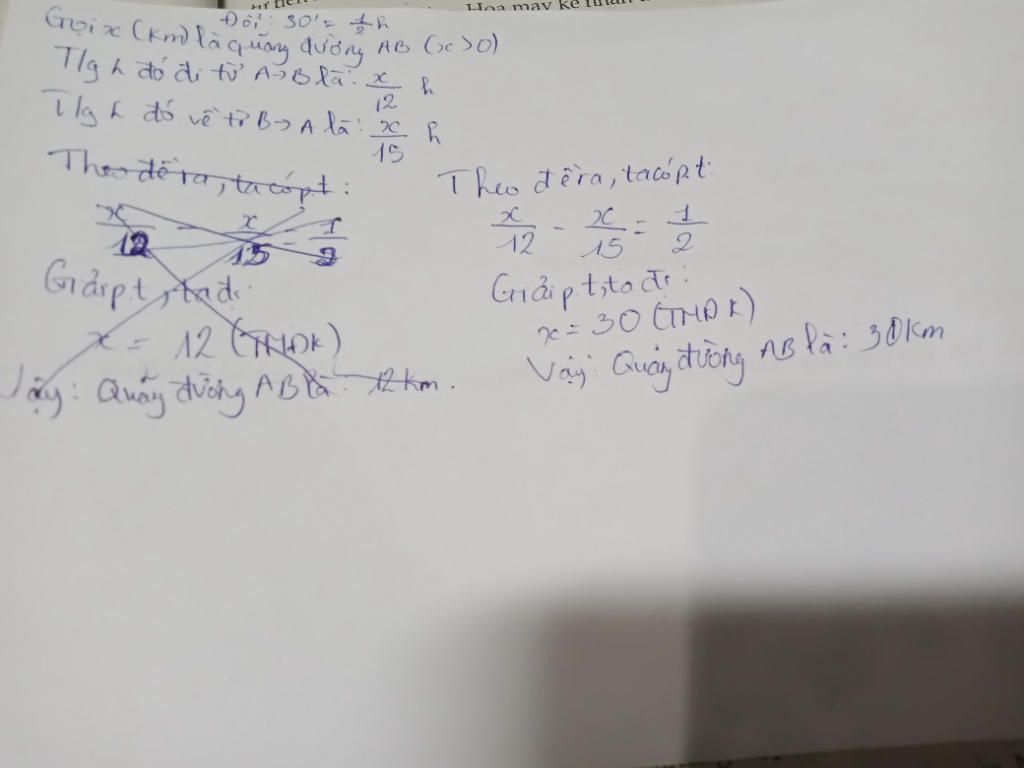 Đổi: 30' = 1/2 h
Gọi x (km) là quãng đường AB (x>0)
T/g h đó đi từ A→B là: x/12 h
T/g h đó về từ B→A là: x/15 h
Theo đề ra, ta có pt:
x/12 - x/15 = 1/2
Giải pt, ta đc:
x = 12 (TMĐK)
Vậy: Quãng đường AB là: 12 km.
Theo đề ra, ta có pt:
x/12 - x/15 = 1/2
Giải pt, ta đc:
x = 30 (TMĐK)
Vậy: Quãng đường AB là: 30 km